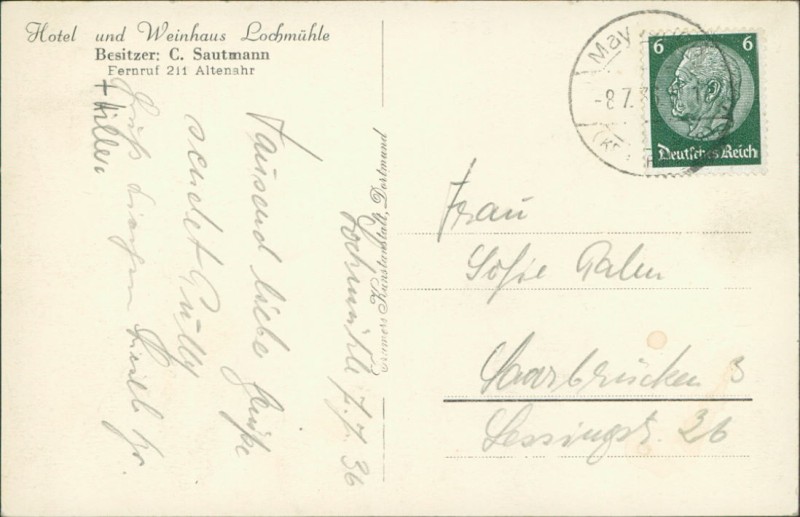 Hotel und Weinhaus Lochmühle
Besitzer: C. Sautmann
Fernruf 211 Altenahr
Lochmühle 7.7.36
Tausend liebe Grüße
sendet
Gruß
+ Hiller
Cramers Kunstanstalt, Dortmund
May
-8.7.3
6 6
Deutsches Reich
Frau
Sofie Palen
Saarbrücken 3
Lessingst. 36